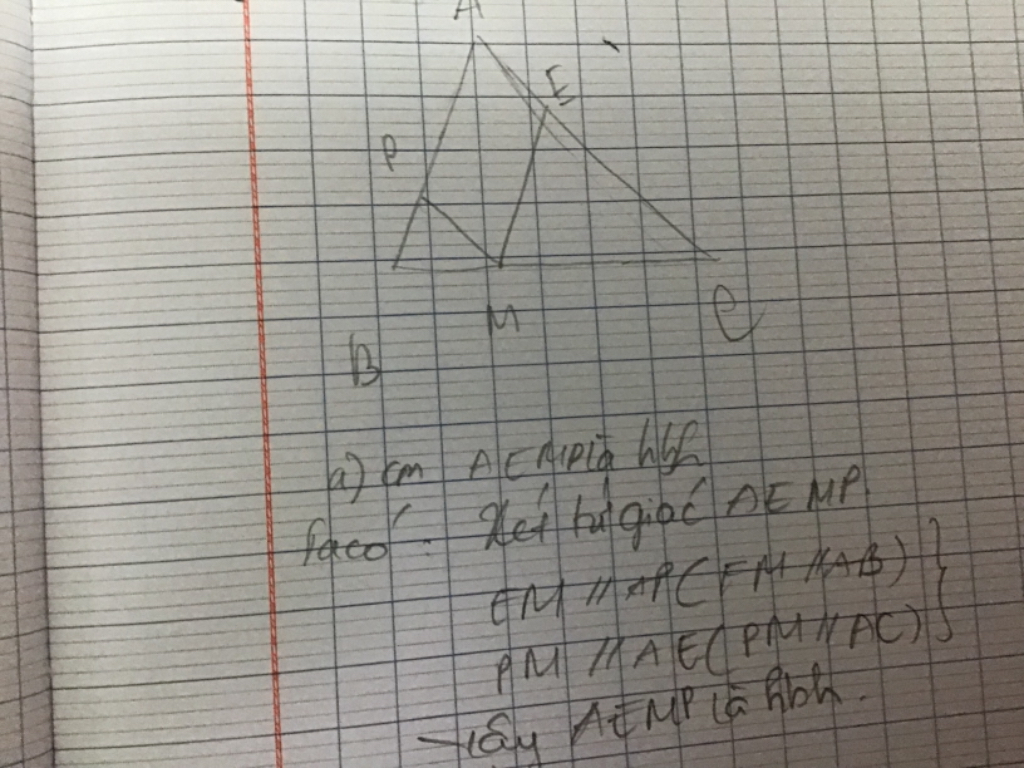 A
E
P
M
C
B
a) cm AEMP là hbh
Ta có: Xét tứ giác AEMP
EM // AP (EM // AB)
PM // AE (PM // AC)
Vậy AEMP là hbh.